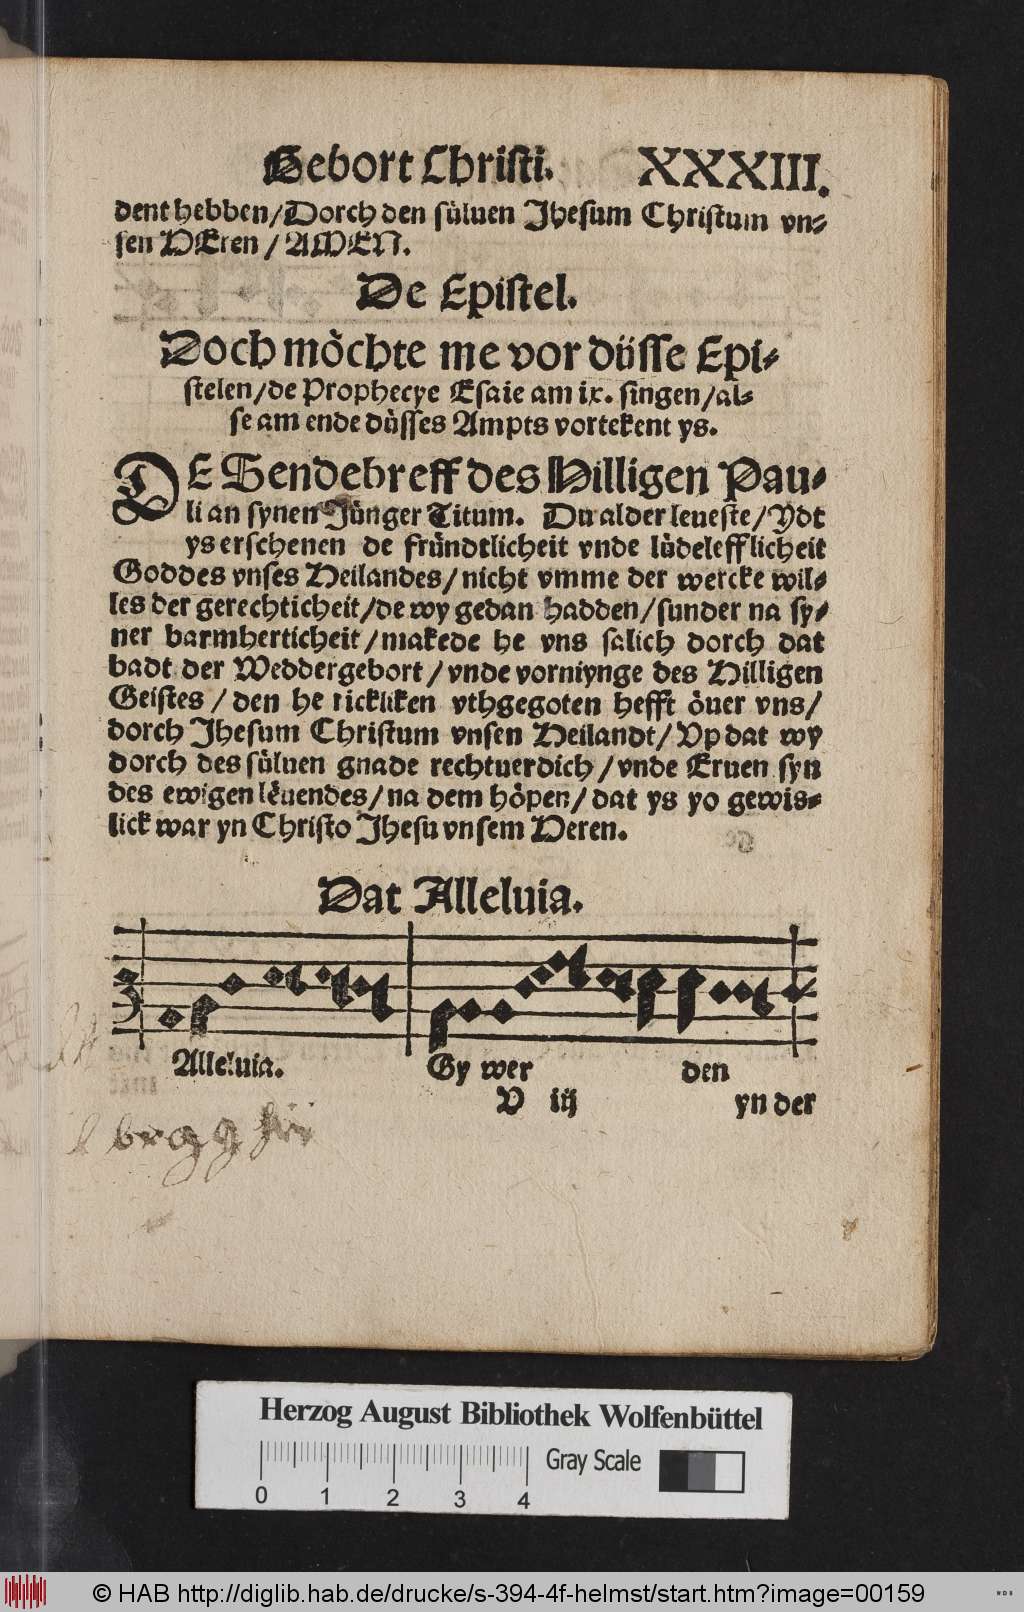 Gebort Christi. XXXIII.
dent hebben/Dorch den sůluen Jhesum Christum vn-
sen HEren / AMEN.
De Epistel.
Doch mȯchte me vor důsse Epi-
stelen/de Prophecye Esaie am ix. singen/al-
se am ende důsses Ampts vortekent ys.
DE Sendebreff des Hilligen Pau-
li an synen Jůnger Titum. Du alder leueste/Ydt
ys erschenen de frůndtlicheit vnde lůdelefflicheit
Goddes vnses Heilandes/nicht vmme der wercke wil-
les der gerechticheit/de wy gedan hadden/sunder na sy-
ner barmherticheit/makede he vns salich dorch dat
badt der Weddergebort/vnde vorniynge des Hilligen
Geistes / den he rickliken vthgegoten hefft ȯuer vns/
dorch Jhesum Christum vnsen Heilandt/Vp dat wy
dorch des sůluen gnade rechtuerdich/vnde Eruen syn
des ewigen lėuendes/na dem hȯpen/dat ys yo gewis-
lick war yn Christo Jhesu vnsem Heren.
Dat Alleluia.
Alleluia. Gy wer den
V iij yn der
Herzog August Bibliothek Wolfenbüttel
Gray Scale
0 1 2 3 4
© HAB http://diglib.hab.de/drucke/s-394-4f-helmst/start.htm?image=00159